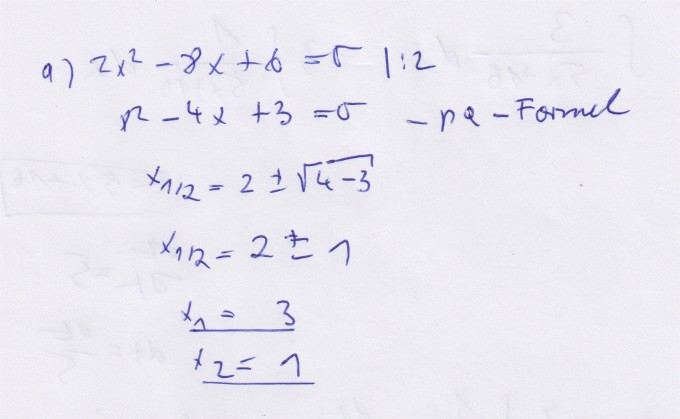 a) 2x² - 8x + 6 = 0 |:2
x² - 4x + 3 = 0 - pq - Formel
x1/2 = 2 ± √4-3
x1/2 = 2 ± 1
x1 = 3
x2 = 1